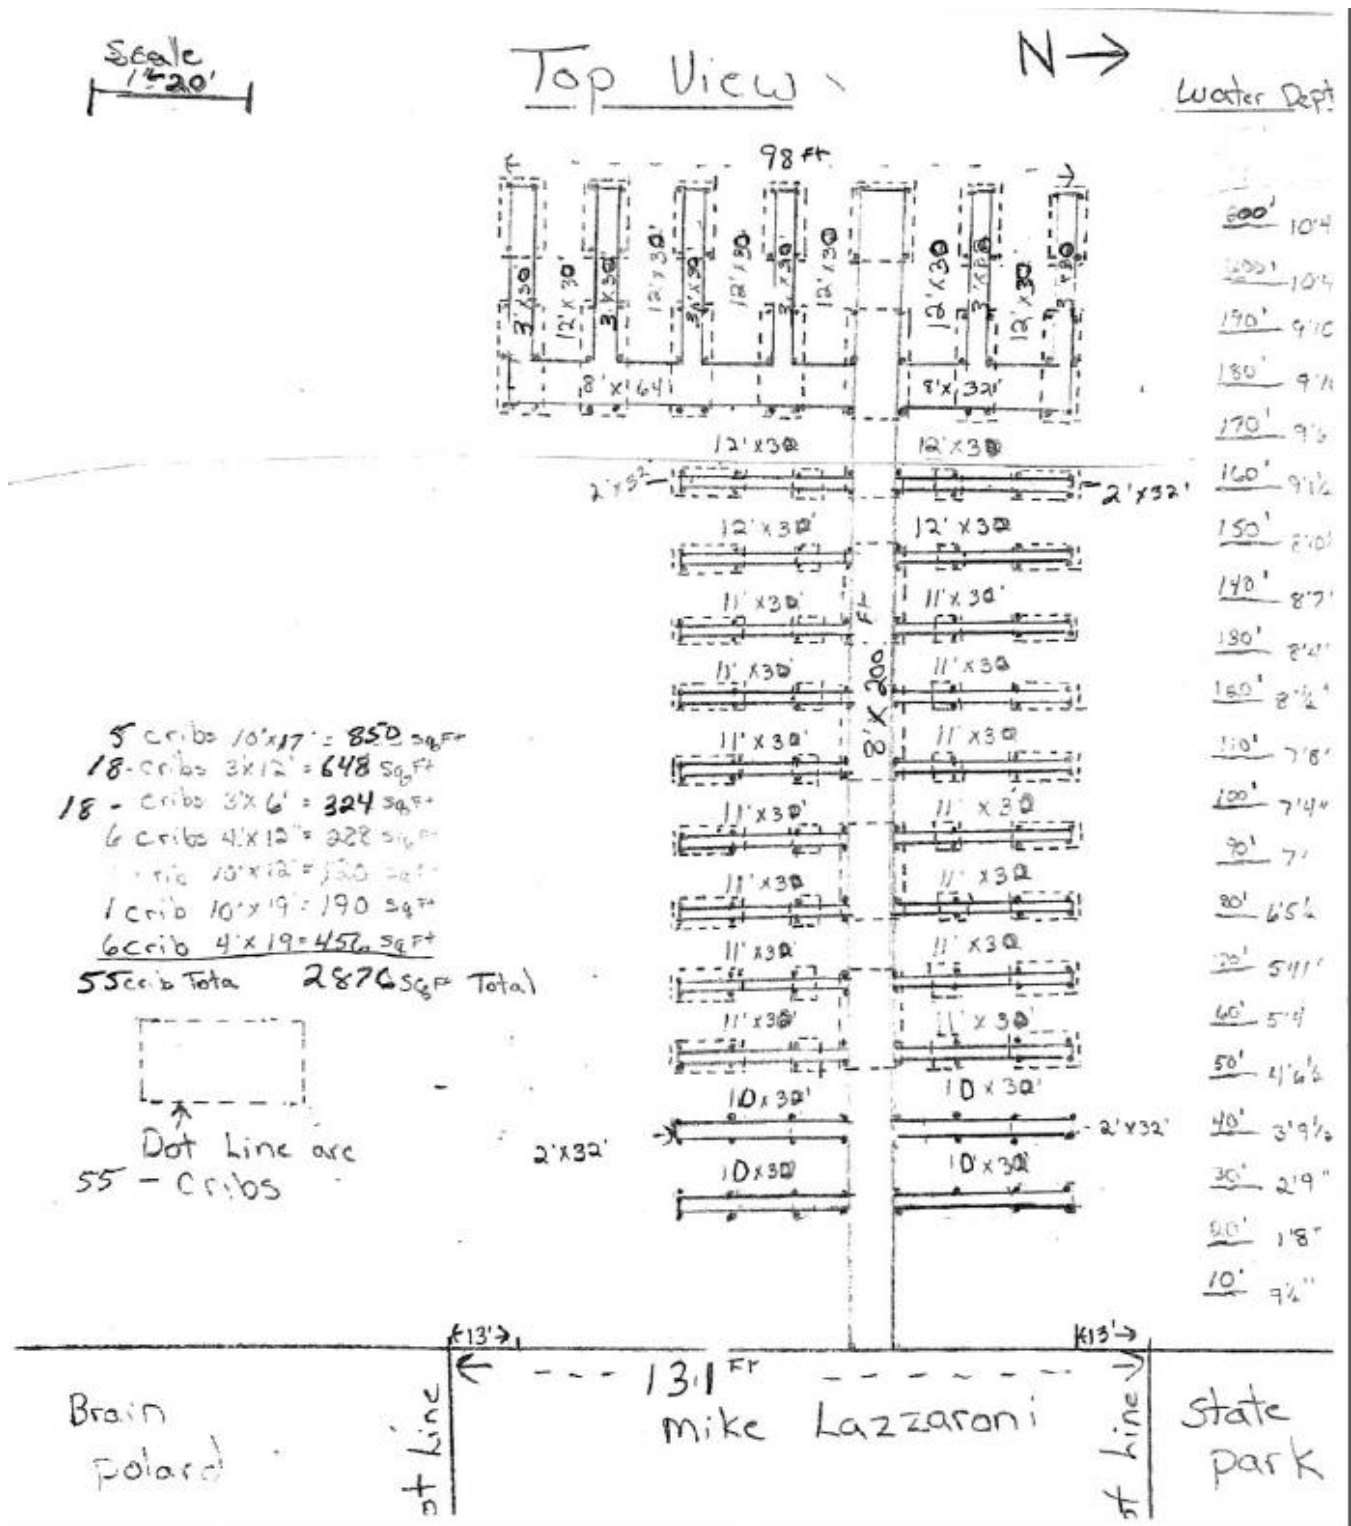 Scale
1"=20'
Top View
N →
Water Dept
98 Ft
3'x30'
12'x30'
3'x30'
12'x30'
3'x30'
12'x30'
3'x30'
12'x30
12'x30
12'x30
8'x 64
8'x 32'
12'x30
12'x30
2'x32'
12'x30
12'x30
11'x30
11'x30'
11'x30
11'x30
11'x30'
11'x30
11'x30'
11'x30
11'x30
11'x30
11'x30
11'x30
11'x30'
11'x30'
10x30'
10x30'
2'x32'
2'x32'
10x30'
10x30'
8'x 200 Ft
10'4
10'4
190'
180'
170'
160' 9'1½
150'
140' 8'7"
8'½"
110' 7'8"
100' 7'4"
90' 7'
80' 6'5½
60' 5'4
50' 4'6½
40' 3'9½
30' 2'9"
20' 1'8"
10' 9½"
5 cribs 10'x17' = 850 sq Ft
18-cribs 3'x12' = 648 Sq Ft
18 - cribs 3'x6' = 324 sq Ft
6 cribs 4'x12' = 288 sq Ft
crib 10'x12' = 120 sq Ft
1 crib 10'x19' = 190 sq Ft
6 crib 4'x19 = 456 sq Ft
55 crib Tota 2876 Sq Ft Total
Dot Line are
55 - Cribs
13'
13'
131 Ft
Brain
polard
ot Line
Mike Lazzaroni
ot Line
State
park